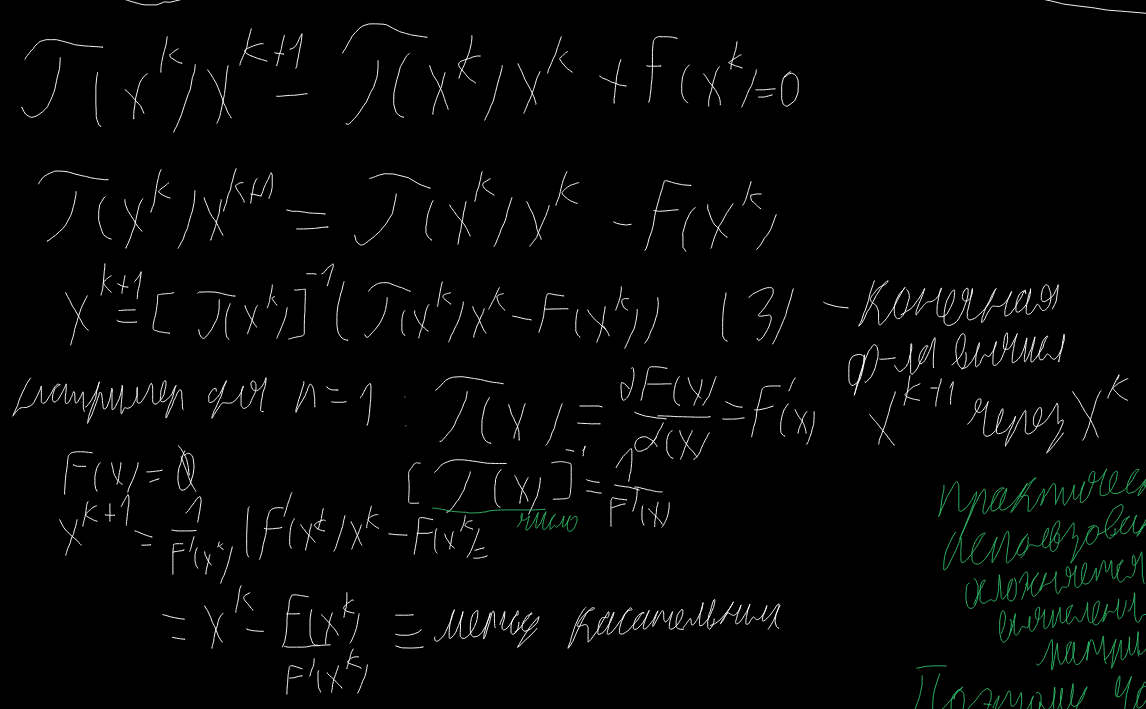 J(x^k)x^{k+1} - J(x^k)x^k + F(x^k) = 0
J(x^k)x^{k+1} = J(x^k)x^k - F(x^k)
x^{k+1} = [J(x^k)]^{-1}(J(x^k)x^k - F(x^k)) (3) - конечная
ф-ла вычисл
x^{k+1} через x^k
например для n = 1 J(x) = ∂F(x)/∂(x) = F'(x)
F(x) = 0 [J(x)]^{-1} = 1/F'(x)
число
x^{k+1} = 1/F'(x^k) (F'(x^k)x^k - F(x^k) =
= x^k - F(x^k)/F'(x^k) = метод касательных
Практичес
использован
осложняется
вычислени
матри
Поэтому